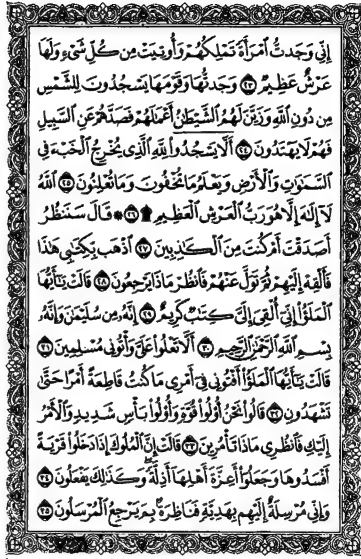 إِنِّي وَجَدتُّ ٱمْرَأَةً تَمْلِكُهُمْ وَأُوتِيَتْ مِن كُلِّ شَىْءٍ وَلَهَا
عَرْشٌ عَظِيمٌ ٢٣ وَجَدتُّهَا وَقَوْمَهَا يَسْجُدُونَ لِلشَّمْسِ
مِن دُونِ ٱللَّهِ وَزَيَّنَ لَهُمُ ٱلشَّيْطَٰنُ أَعْمَٰلَهُمْ فَصَدَّهُمْ عَنِ ٱلسَّبِيلِ
فَهُمْ لَا يَهْتَدُونَ ٢٤ أَلَّا يَسْجُدُوا۟ لِلَّهِ ٱلَّذِى يُخْرِجُ ٱلْخَبْءَ فِى
ٱلسَّمَٰوَٰتِ وَٱلْأَرْضِ وَيَعْلَمُ مَا تُخْفُونَ وَمَا تُعْلِنُونَ ٢٥ ٱللَّهُ
لَآ إِلَٰهَ إِلَّا هُوَ رَبُّ ٱلْعَرْشِ ٱلْعَظِيمِ ۩ ٢٦ ۞ قَالَ سَنَنظُرُ
أَصَدَقْتَ أَمْ كُنتَ مِنَ ٱلْكَٰذِبِينَ ٢٧ ٱذْهَب بِّكِتَٰبِى هَٰذَا
فَأَلْقِهْ إِلَيْهِمْ ثُمَّ تَوَلَّ عَنْهُمْ فَٱنظُرْ مَاذَا يَرْجِعُونَ ٢٨ قَالَتْ يَٰٓأَيُّهَا
ٱلْمَلَؤُا۟ إِنِّىٓ أُلْقِىَ إِلَىَّ كِتَٰبٌ كَرِيمٌ ٢٩ إِنَّهُۥ مِن سُلَيْمَٰنَ وَإِنَّهُۥ
بِسْمِ ٱللَّهِ ٱلرَّحْمَٰنِ ٱلرَّحِيمِ ٣٠ أَلَّا تَعْلُوا۟ عَلَىَّ وَأْتُونِى مُسْلِمِينَ ٣١
قَالَتْ يَٰٓأَيُّهَا ٱلْمَلَؤُا۟ أَفْتُونِى فِىٓ أَمْرِى مَا كُنتُ قَاطِعَةً أَمْرًا حَتَّىٰ
تَشْهَدُونِ ٣٢ قَالُوا۟ نَحْنُ أُو۟لُوا۟ قُوَّةٍ وَأُو۟لُوا۟ بَأْسٍ شَدِيدٍ وَٱلْأَمْرُ
إِلَيْكِ فَٱنظُرِى مَاذَا تَأْمُرِينَ ٣٣ قَالَتْ إِنَّ ٱلْمُلُوكَ إِذَا دَخَلُوا۟ قَرْيَةً
أَفْسَدُوهَا وَجَعَلُوٓا۟ أَعِزَّةَ أَهْلِهَآ أَذِلَّةً ۖ وَكَذَٰلِكَ يَفْعَلُونَ ٣٤
وَإِنِّى مُرْسِلَةٌ إِلَيْهِم بِهَدِيَّةٍ فَنَاظِرَةٌۢ بِمَ يَرْجِعُ ٱلْمُرْسَلُونَ ٣٥